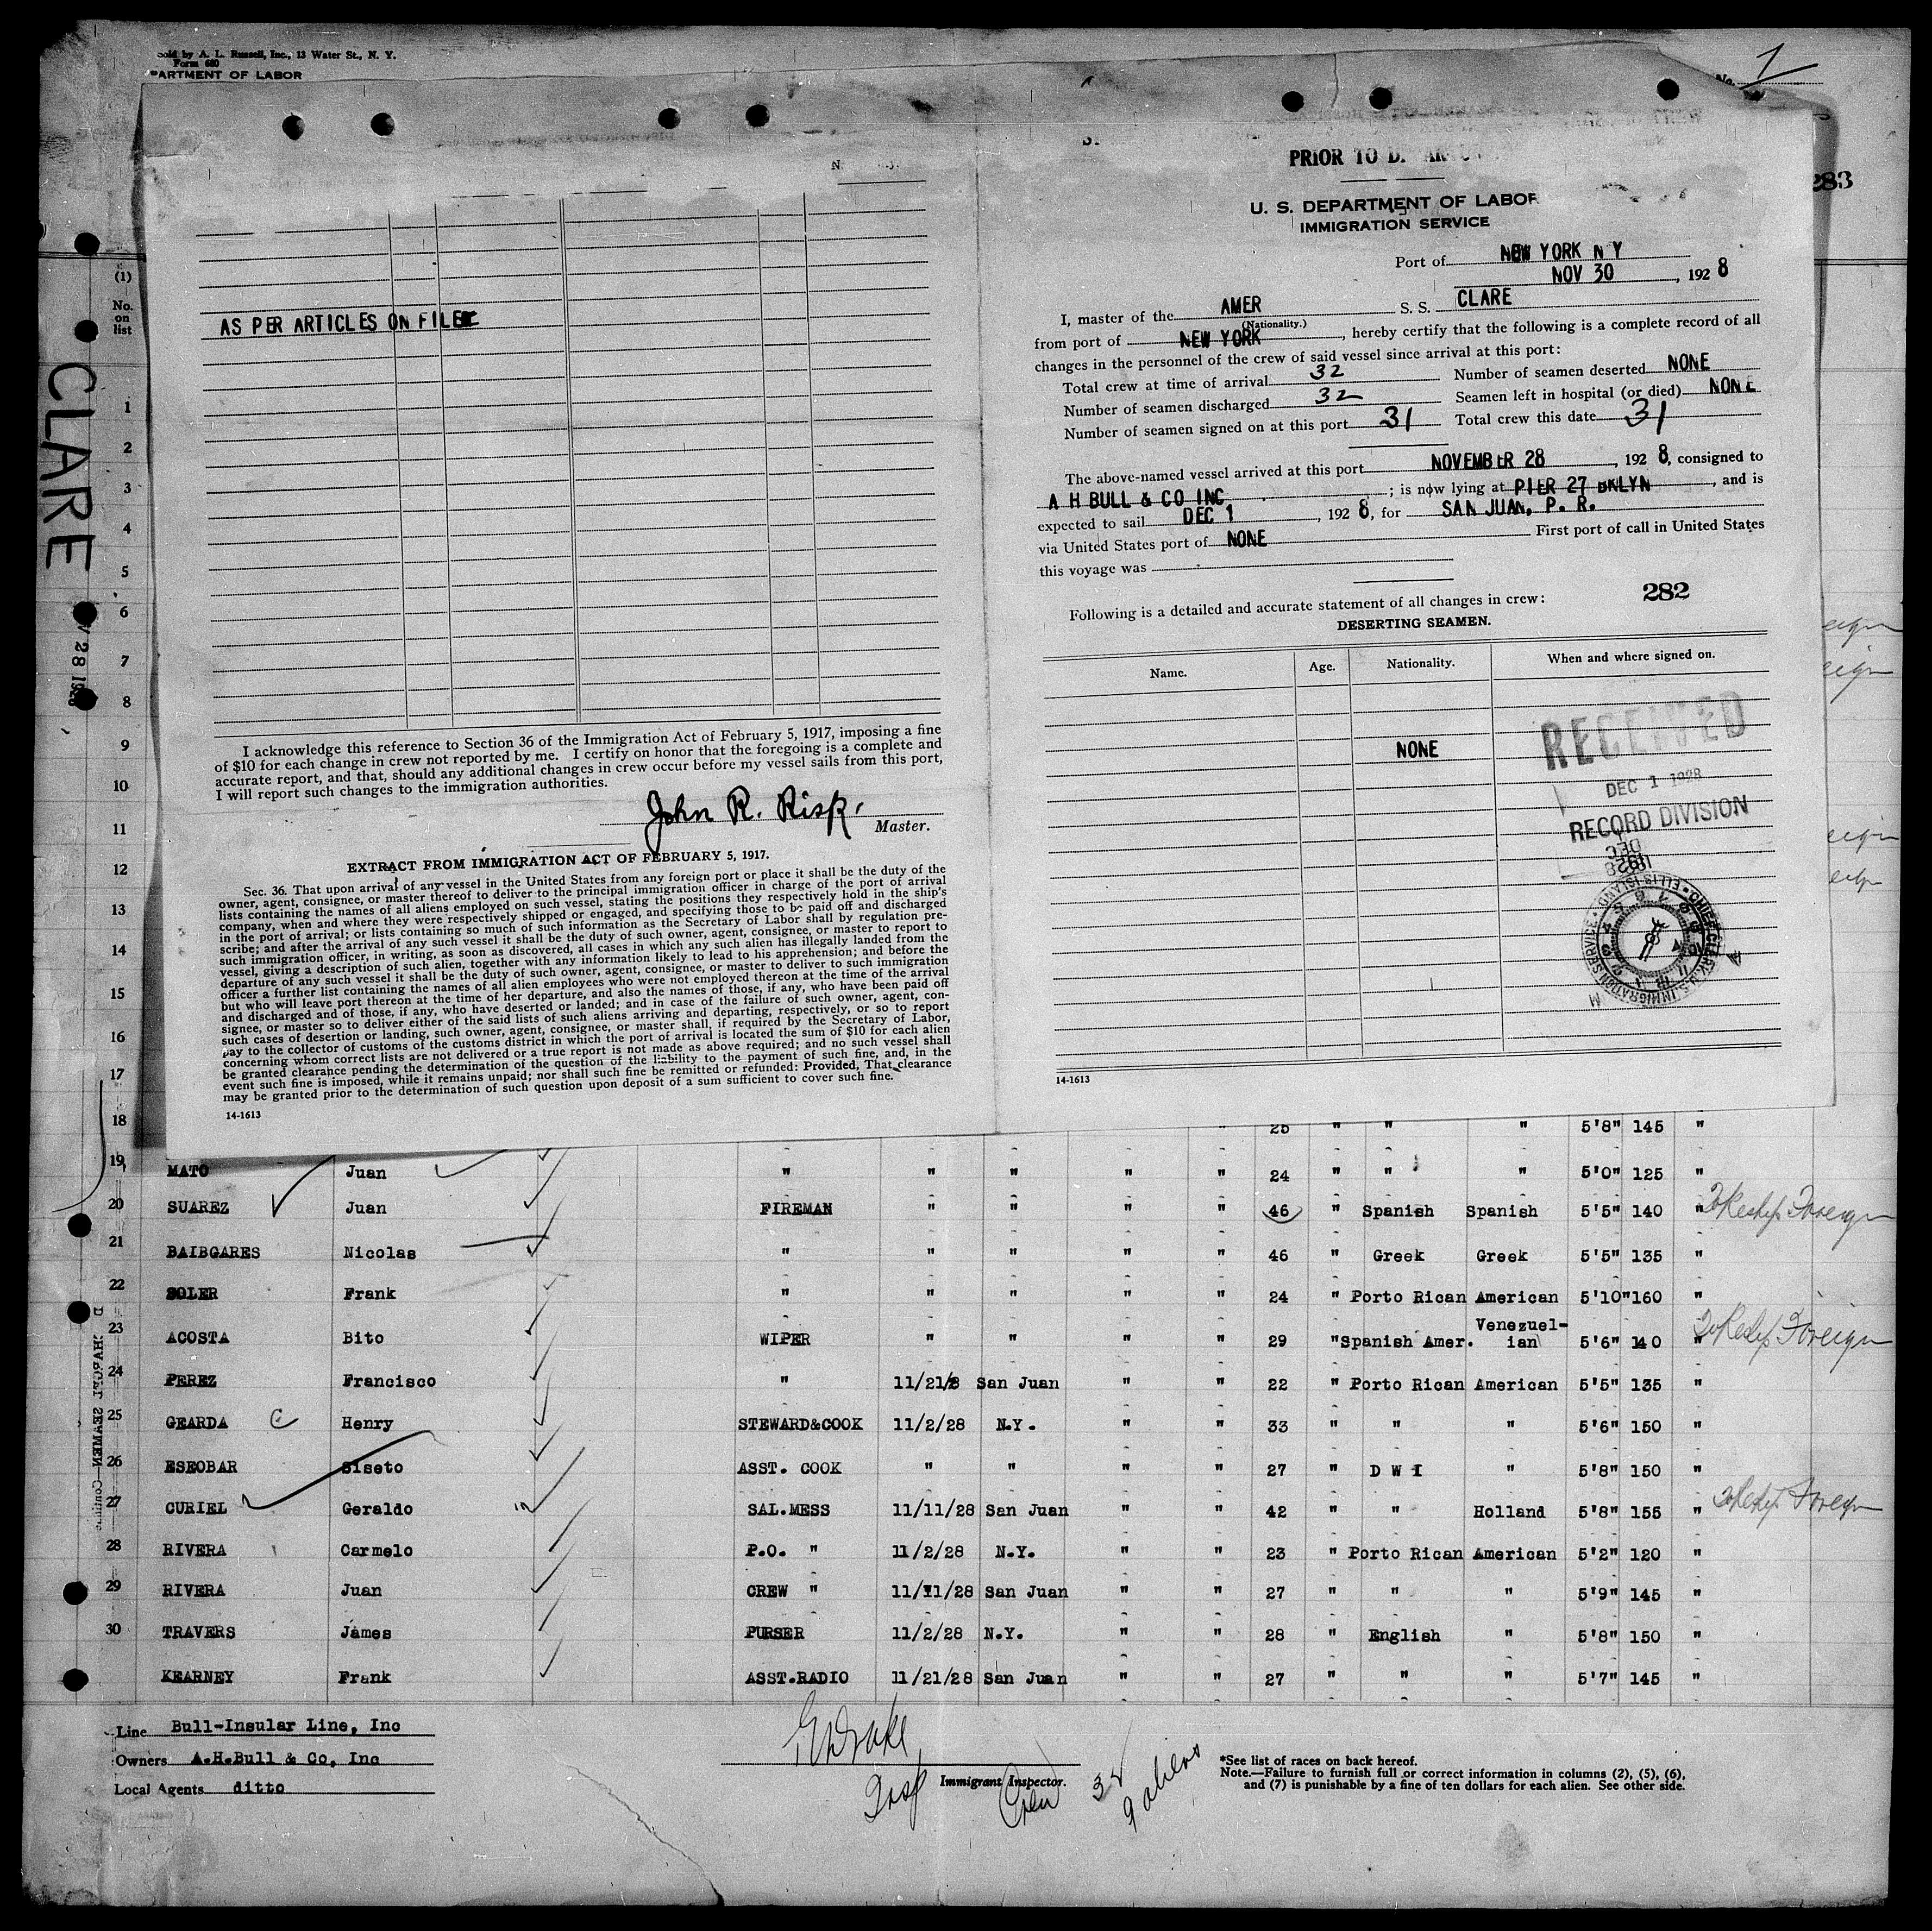 Sold by A. L. Russell, Inc., 13 Water St., N. Y.
Form 680
PARTMENT OF LABOR
No. 1
283
(1)
No.
on
list
CLARE
28 1928
1
2
3
4
5
6
7
8
9
10
11
12
13
14
15
16
17
18
AS PER ARTICLES ON FILE
I acknowledge this reference to Section 36 of the Immigration Act of February 5, 1917, imposing a fine
of $10 for each change in crew not reported by me. I certify on honor that the foregoing is a complete and
accurate report, and that, should any additional changes in crew occur before my vessel sails from this port,
I will report such changes to the immigration authorities.
John R. Risk.
Master.
EXTRACT FROM IMMIGRATION ACT OF FEBRUARY 5, 1917.
Sec. 36. That upon arrival of any vessel in the United States from any foreign port or place it shall be the duty of the
owner, agent, consignee, or master thereof to deliver to the principal immigration officer in charge of the port of arrival
lists containing the names of all aliens employed on such vessel, stating the positions they respectively hold in the ship's
company, when and where they were respectively shipped or engaged, and specifying those to be paid off and discharged
in the port of arrival; or lists containing so much of such information as the Secretary of Labor shall by regulation pre-
scribe; and after the arrival of any such vessel it shall be the duty of such owner, agent, consignee, or master to report to
such immigration officer, in writing, as soon as discovered, all cases in which any such alien has illegally landed from the
vessel, giving a description of such alien, together with any information likely to lead to his apprehension; and before the
departure of any such vessel it shall be the duty of such owner, agent, consignee, or master to deliver to such immigration
officer a further list containing the names of all alien employees who were not employed thereon at the time of the arrival
but who will leave port thereon at the time of her departure, and also the names of those, if any, who have been paid off
and discharged and of those, if any, who have deserted or landed; and in case of the failure of such owner, agent, con-
signee, or master so to deliver either of the said lists of such aliens arriving and departing, respectively, or so to report
such cases of desertion or landing, such owner, agent, consignee, or master shall, if required by the Secretary of Labor,
pay to the collector of customs of the customs district in which the port of arrival is located the sum of $10 for each alien
concerning whom correct lists are not delivered or a true report is not made as above required; and no such vessel shall
be granted clearance pending the determination of the question of the liability to the payment of such fine, and, in the
event such fine is imposed, while it remains unpaid; nor shall such fine be remitted or refunded: Provided, That clearance
may be granted prior to the determination of such question upon deposit of a sum sufficient to cover such fine.
14-1613
PRIOR TO
U. S. DEPARTMENT OF LABOR
IMMIGRATION SERVICE
Port of NEW YORK N Y
NOV 30, 1928
I, master of the AMER S. S. CLARE
(Nationality.)
from port of NEW YORK, hereby certify that the following is a complete record of all
changes in the personnel of the crew of said vessel since arrival at this port:
Total crew at time of arrival 32 Number of seamen deserted NONE
Number of seamen discharged 32 Seamen left in hospital (or died) NONE
Number of seamen signed on at this port 31 Total crew this date 31
The above-named vessel arrived at this port NOVEMBER 28, 1928, consigned to
A H BULL & CO INC; is now lying at PIER 27 BKLYN, and is
expected to sail DEC 1, 1928, for SAN JUAN, P. R.
via United States port of NONE First port of call in United States
this voyage was
282
Following is a detailed and accurate statement of all changes in crew:
DESERTING SEAMEN.
Name. Age. Nationality. When and where signed on.
NONE
RECEIVED
DEC 1 1928
RECORD DIVISION
DEC
1 1928
CHIEF CLERK U.S. IMMIGRATION SERVICE ELLIS ISLAND
14-1613
25 " " " 5'8" 145 "
19 MATO Juan " " " " " 24 " " " 5'0" 125 "
20 SUAREZ Juan FIREMAN " " " " 46 " Spanish Spanish 5'5" 140 " Foreign
21 BAIBGARES Nicolas " " " " " 46 " Greek Greek 5'5" 135 "
22 SOLER Frank " " " " " 24 " Porto Rican American 5'10" 160 "
23 ACOSTA Bito WIPER " " " " 29 " Spanish Amer. Venezuel-ian 5'6" 140 " Foreign
24 PEREZ Francisco " 11/21/8 San Juan " " 22 " Porto Rican American 5'5" 135 "
25 GEARDA Henry STEWARD&COOK 11/2/28 N.Y. " " 33 " " " 5'6" 150 "
26 ESEOBAR Siseto ASST. COOK " " " " 27 " D W I " 5'8" 150 "
27 CURIEL Geraldo SAL.MESS 11/11/28 San Juan " " 42 " " Holland 5'8" 155 " Foreign
28 RIVERA Carmelo P.O. " 11/2/28 N.Y. " " 23 " Porto Rican American 5'2" 120 "
29 RIVERA Juan CREW " 11/11/28 San Juan " " 27 " " " 5'9" 145 "
30 TRAVERS James PURSER 11/2/28 N.Y. " " 28 " English " 5'8" 150 "
KEARNEY Frank ASST.RADIO 11/21/28 San Juan " " 27 " " " 5'7" 145 "
Line Bull-Insular Line, Inc
Owners A.H.Bull & Co, Inc
Local Agents ditto
Immigrant Inspector.
Insp Crew 32
9 aliens
*See list of races on back hereof.
Note.—Failure to furnish full or correct information in columns (2), (5), (6),
and (7) is punishable by a fine of ten dollars for each alien. See other side.